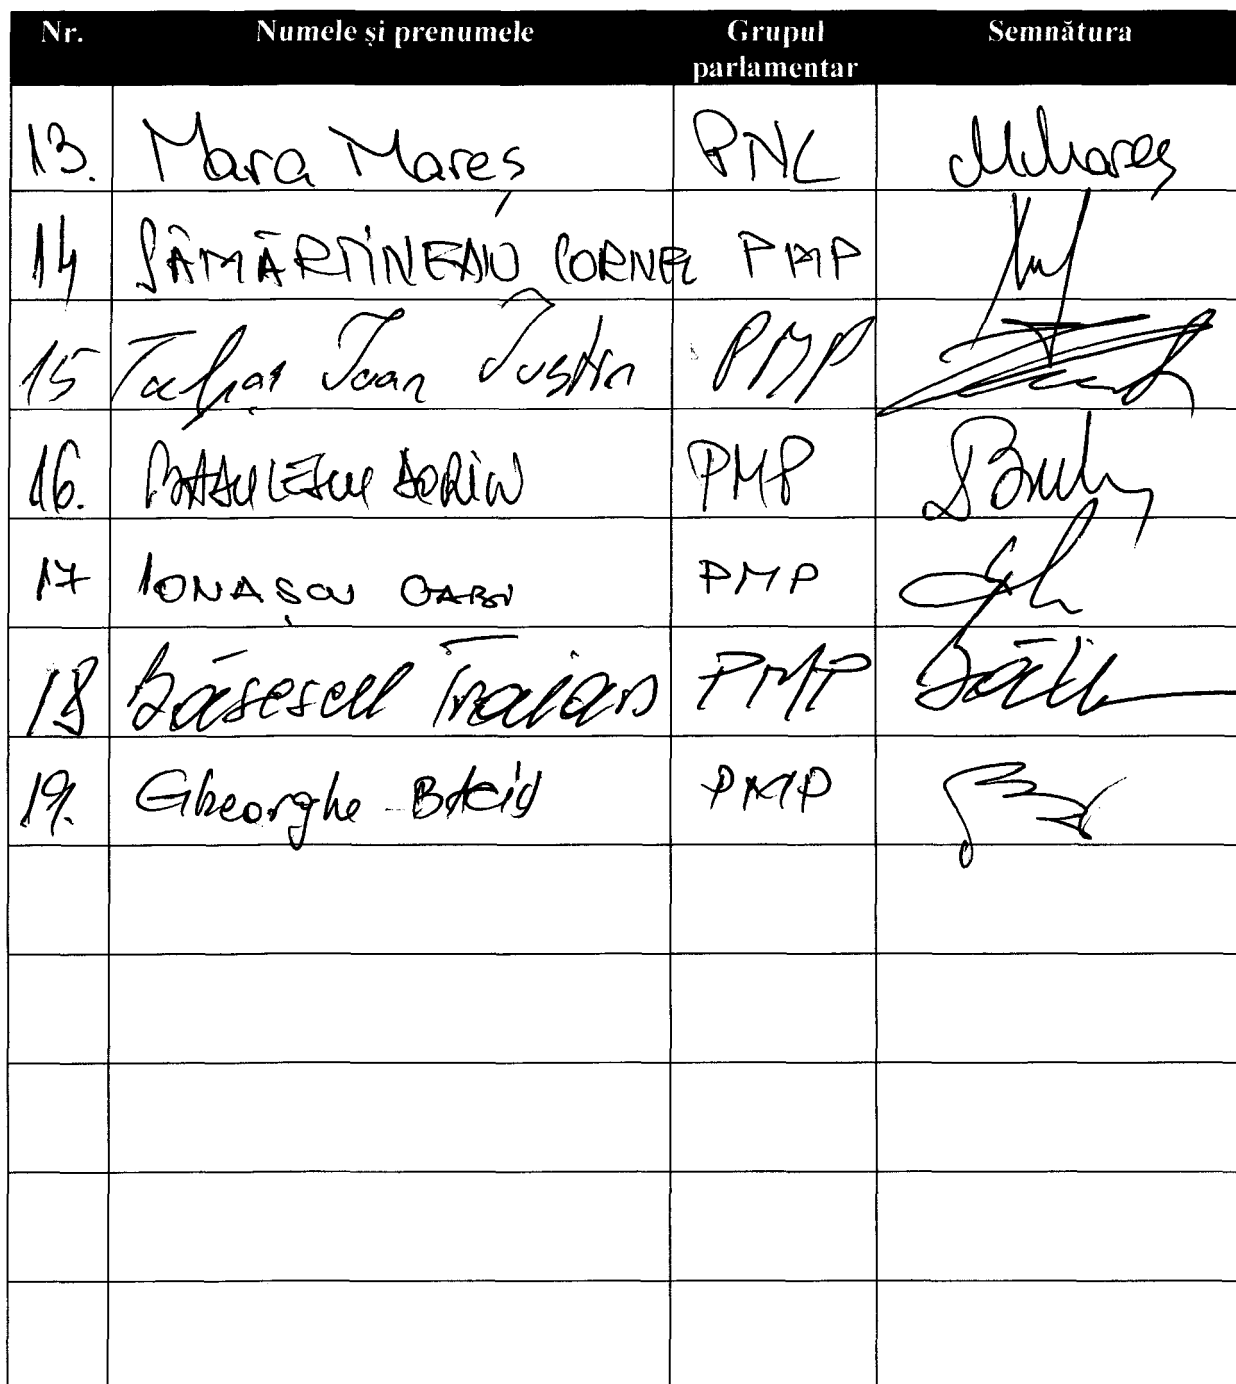 Nr. Numele și prenumele Grupul parlamentar Semnătura
13. Mara Mareș PNL MMareș
14 SĂMĂRTINEAN CORNEL PMP
15 Ioan Iustin PMP
16. PMP
17 IONAȘCU GABI PMP
18 Băsescu Traian PMP
19. Gheorghe BACIU PMP